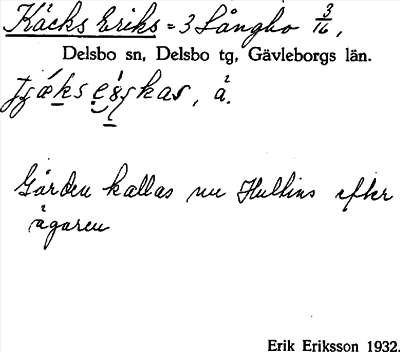 Käcks Eriks = 3 Långbo 3/16,
Delsbo sn, Delsbo tg, Gävleborgs län.
å.
Gården kallas nu Hultins efter
ägaren
Erik Eriksson 1932.